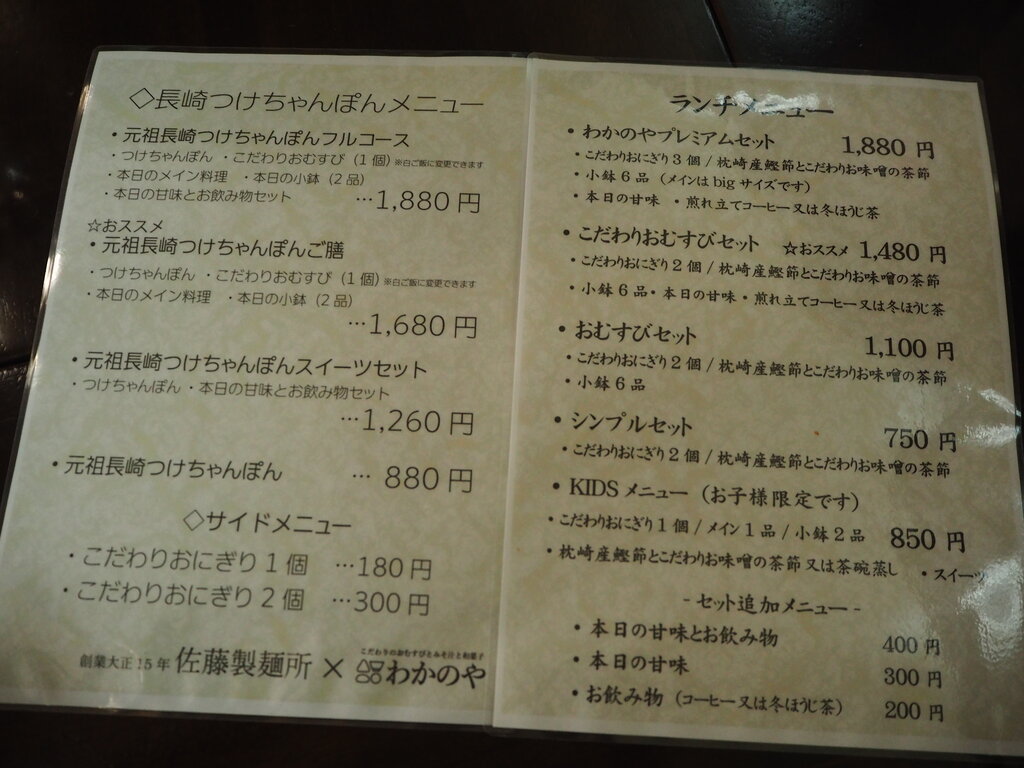 ◇長崎つけちゃんぽんメニュー
・元祖長崎つけちゃんぽんフルコース
・つけちゃんぽん ・こだわりおむすび (1個) ※白ご飯に変更できます
・本日のメイン料理 ・本日の小鉢 (2品)
・本日の甘味とお飲み物セット …1,880円
☆おススメ
・元祖長崎つけちゃんぽんご膳
・つけちゃんぽん ・こだわりおむすび (1個) ※白ご飯に変更できます
・本日のメイン料理 ・本日の小鉢 (2品)
…1,680円
・元祖長崎つけちゃんぽんスイーツセット
・つけちゃんぽん ・本日の甘味とお飲み物セット
…1,260円
・元祖長崎つけちゃんぽん … 880円
◇サイドメニュー
・こだわりおにぎり1個 …180円
・こだわりおにぎり2個 …300円
創業大正15年 佐藤製麺所 × わかのや
こだわりのおむすびとみそ汁と和菓子
ランチメニュー
・わかのやプレミアムセット 1,880円
・こだわりおにぎり3個 / 枕崎産鰹節とこだわりお味噌の茶節
・小鉢6品 (メインは big サイズです)
・本日の甘味 ・煎れ立てコーヒー又は冬ほうじ茶
・こだわりおむすびセット ☆おススメ 1,480円
・こだわりおにぎり2個 / 枕崎産鰹節とこだわりお味噌の茶節
・小鉢6品・本日の甘味・煎れ立てコーヒー又は冬ほうじ茶
・おむすびセット 1,100円
・こだわりおにぎり2個 / 枕崎産鰹節とこだわりお味噌の茶節
・小鉢6品
・シンプルセット 750円
・こだわりおにぎり2個 / 枕崎産鰹節とこだわりお味噌の茶節
・KIDS メニュー (お子様限定です)
・こだわりおにぎり1個 / メイン1品 / 小鉢2品 850円
・枕崎産鰹節とこだわりお味噌の茶節又は茶碗蒸し ・スイーツ
- セット追加メニュー -
・本日の甘味とお飲み物 400円
・本日の甘味 300円
・お飲み物 (コーヒー又は冬ほうじ茶) 200円